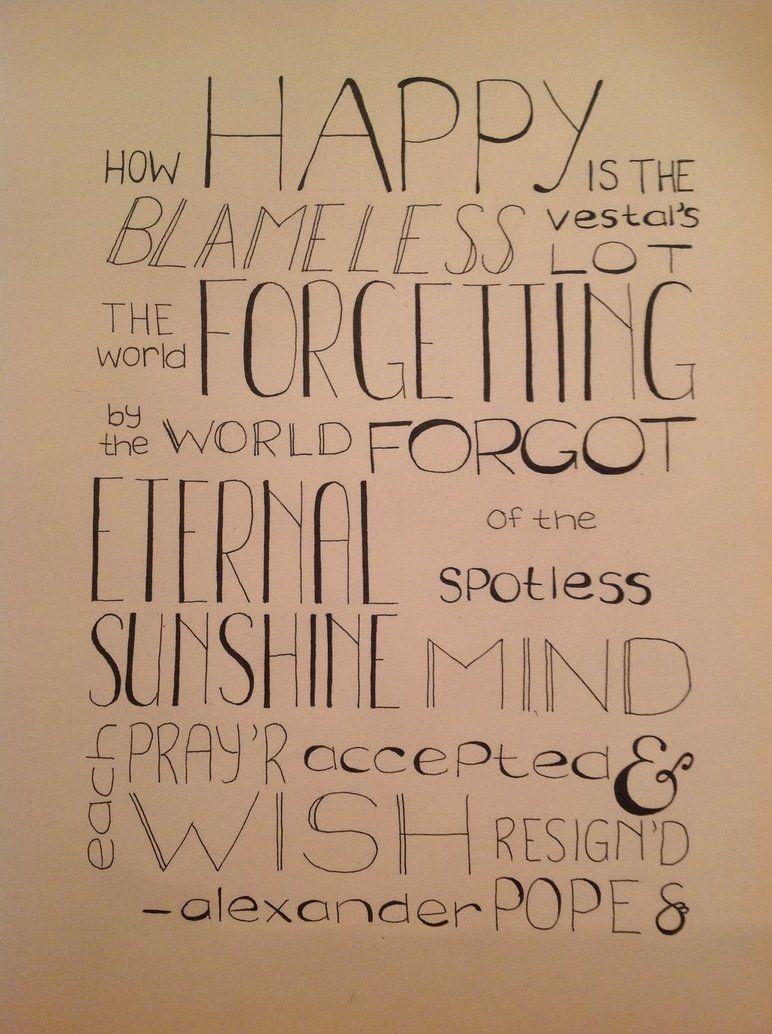 HOW HAPPY IS THE
BLAMELESS vestal's LOT
THE world FORGETTING
by the WORLD FORGOT
ETERNAL SUNSHINE
of the
spotless
MIND
each PRAY'R accepted &
WISH RESIGN'D
-alexander POPE &